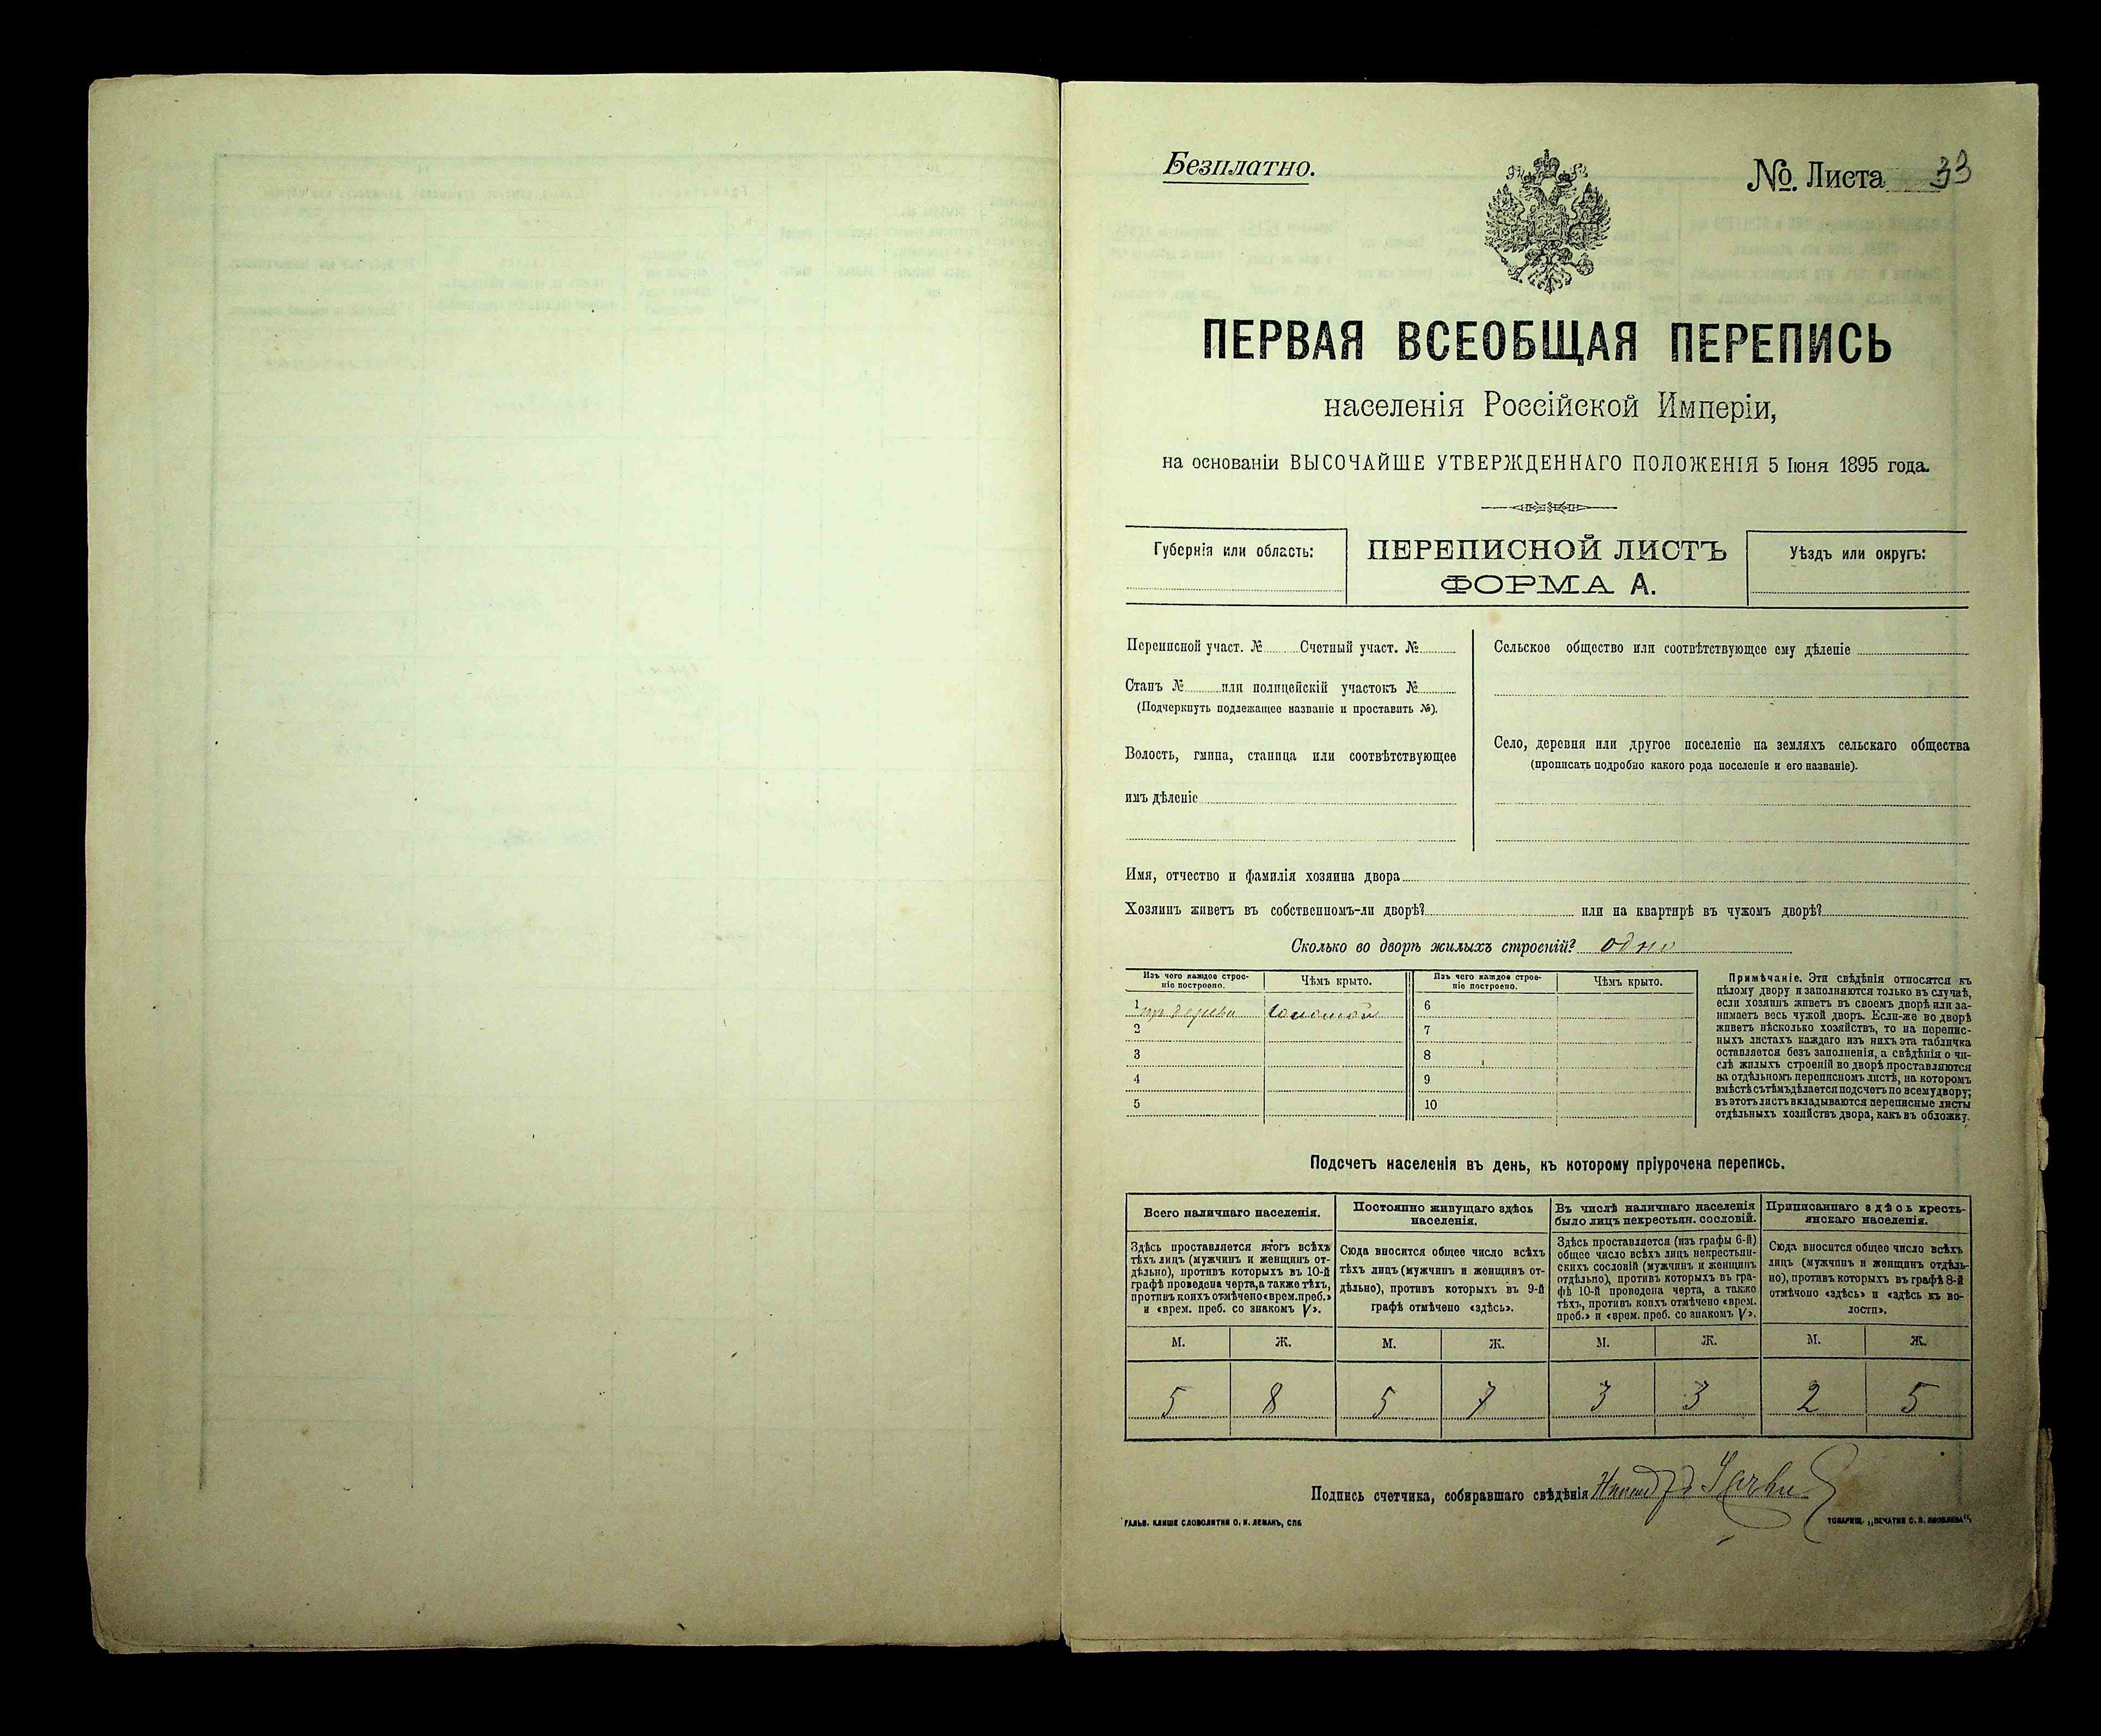 Безплатно.
№. Листа 33
ПЕРВАЯ ВСЕОБЩАЯ ПЕРЕПИСЬ
населенія Россійской Имперіи,
на основаніи ВЫСОЧАЙШЕ УТВЕРЖДЕННАГО ПОЛОЖЕНІЯ 5 Іюня 1895 года.
Губернія или область:
ПЕРЕПИСНОЙ ЛИСТЪ
ФОРМА А.
Уѣздъ или округъ:
Переписной участ. № Счетный участ. №
Станъ № или полицейскій участокъ №
(Подчеркнуть подлежащее названіе и проставить №).
Волость, гмина, станица или соотвѣтствующее
имъ дѣленіе
Сельское общество или соотвѣтствующее ему дѣленіе
Село, деревня или другое поселеніе на земляхъ сельскаго общества
(прописать подробно какого рода поселеніе и его названіе).
Имя, отчество и фамилія хозяина двора
Хозяинъ живетъ въ собственномъ-ли дворѣ? или на квартирѣ въ чужомъ дворѣ?
Сколько во дворѣ жилыхъ строеній? одно
Изъ чего каждое строе-
ніе построено.
Чѣмъ крыто.
Изъ чего каждое строе-
ніе построено.
Чѣмъ крыто.
1 дерева соломой 6
2 7
3 8
4 9
5 10
Примѣчаніе. Эти свѣдѣнія относятся къ
цѣлому двору и заполняются только въ случаѣ,
если хозяинъ живетъ въ своемъ дворѣ или за-
нимаетъ весь чужой дворъ. Если-же во дворѣ
живетъ нѣсколько хозяйствъ, то на перепис-
ныхъ листахъ каждаго изъ нихъ эта табличка
оставляется безъ заполненія, а свѣдѣнія о чи-
слѣ жилыхъ строеній во дворѣ проставляются
на отдѣльномъ переписномъ листѣ, на которомъ
вмѣстѣ съ тѣмъ дѣлается подсчетъ по всему двору;
въ этотъ листъ вкладываются переписные листы
отдѣльныхъ хозяйствъ двора, какъ въ обложку.
Подсчетъ населенія въ день, къ которому пріурочена перепись.
Всего наличнаго населенія.
Здѣсь проставляется итогъ всѣхъ
тѣхъ лицъ (мужчинъ и женщинъ от-
дѣльно), противъ которыхъ въ 10-й
графѣ проведена черта, а также тѣхъ,
противъ коихъ отмѣчено «врем. преб.»
и «врем. преб. со знакомъ V».
Постоянно живущаго здѣсь
населенія.
Сюда вносится общее число всѣхъ
тѣхъ лицъ (мужчинъ и женщинъ от-
дѣльно), противъ которыхъ въ 9-й
графѣ отмѣчено «здѣсь».
Въ числѣ наличнаго населенія
было лицъ некрестьян. сословій.
Здѣсь проставляется (изъ графы 6-й)
общее число всѣхъ лицъ некрестьян-
скихъ сословій (мужчинъ и женщинъ
отдѣльно), противъ которыхъ въ гра-
фѣ 10-й проведена черта, а также
тѣхъ, противъ коихъ отмѣчено «врем.
преб.» и «врем. преб. со знакомъ V».
Приписаннаго здѣсь кресть-
янскаго населенія.
Сюда вносится общее число всѣхъ
лицъ (мужчинъ и женщинъ отдѣль-
но), противъ которыхъ въ графѣ 8-й
отмѣчено «здѣсь» и «здѣсь къ во-
лости».
М. Ж. М. Ж. М. Ж. М. Ж.
5 8 5 7 3 3 2 5
Подпись счетчика, собиравшаго свѣдѣнія
ГАЛЬВ. КЛИШЕ СЛОВОЛИТНИ О. И. ЛЕМАНЪ, СПБ
ТОВАРИЩ. „ПЕЧАТНЯ С. П. ЯКОВЛЕВА“.